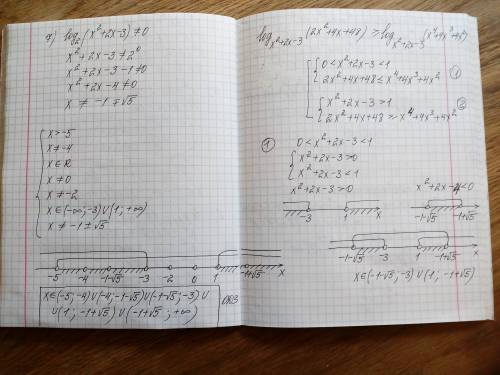 7) log₂(x²+2x-3) ≠ 0
x²+2x-3 ≠ 2⁰
x²+2x-3-1 ≠ 0
x²+2x-4 ≠ 0
x ≠ -1 ∓ √5
x > -5
x ≠ -4
x ∈ R
x ≠ 0
x ≠ -2
x ∈ (-∞; -3) ∪ (1; +∞)
x ≠ -1 ± √5
-5 -4 -1-√5 -3 -2 0 1 -1+√5 x
x ∈ (-5; -4) ∪ (-4; -1-√5) ∪ (-1-√5; -3) ∪
∪ (1; -1+√5) ∪ (-1+√5; +∞)
ОДЗ
log_{x²+2x-3} (2x²+4x+48) ≥ log_{x²+2x-3} (x⁴+4x³+4x²)
0 < x²+2x-3 < 1
2x²+4x+48 ≤ x⁴+4x³+4x² ①
x²+2x-3 > 1 ②
2x²+4x+48 ≥ x⁴+4x³+4x²
① 0 < x²+2x-3 < 1
x²+2x-3 > 0
x²+2x-3 < 1
x²+2x-3 > 0 x²+2x-4 < 0
-3 1 x -1-√5 -1+√5 x
-1-√5 -3 1 -1+√5 x
x ∈ (-1-√5; -3) ∪ (1; -1+√5)